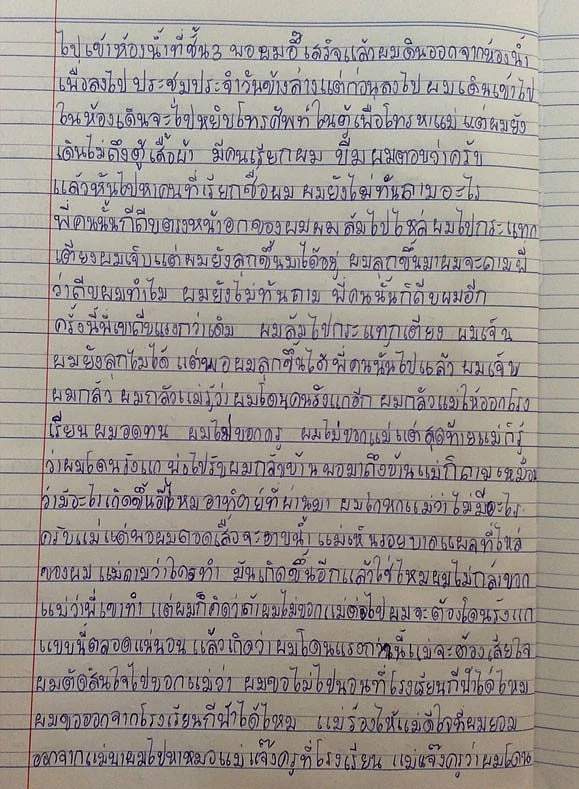 ไปเข้าห้องน้ำที่ชั้น3 พอผมอึ๊เสร็จแล้วผมเดินออกจากห้องน้ำ
เพื่อลงไป ประชุมประจำวันข้างล่างแต่ก่อนลงไป ผมเดินเข้าไป
ในห้องเดินจะไปหยิบโทรศัพท์ในตู้เพื่อโทรหาแม่ แต่ผมยัง
เดินไม่ถึงตู้เสื้อผ้า มีคนเรียกผม ผมตอบว่าครับ
แล้วหันไปหาคนที่เรียกชื่อผม ผมยังไม่ทันถามอะไร
พี่คนนั้นก็ถีบตรงหน้าอกของผมผมล้มไปไหล่ผมไปกระแทก
เตียงผมเจ็บแต่ผมยังลุกขึ้นมาได้อยู่ ผมลุกขึ้นมาผมจะถามพี่
ว่าถีบผมทำไม ผมยังไม่ทันถาม พี่คนนั้นก็ถีบผมอีก
ครั้งนี้พี่เขาถีบแรงกว่าเดิม ผมล้มไปกระแทกเตียง ผมเจ็บ
ผมยังลุกไม่ได้ แต่พอผมลุกขึ้นได้พี่คนนั้นไปแล้ว ผมเจ็บ
ผมกลัว ผมกลัวแม่รู้ว่าผมโดนคนรังแกอีก ผมกลัวแม่ให้ออกโรง
เรียน ผมอดทน ผมไม่บอกครู ผมไม่บอกแม่ แต่สุดท้ายแม่ก็รู้
ว่าผมโดนรังแก พ่อไปรับผมกลับบ้าน พอมาถึงบ้านแม่ก็ถามเหมือน
ว่ามีอะไรเกิดขึ้นอีไหมอาทิตย์ที่ผ่านมา ผมโกหกแม่ว่าไม่มีอะไร
ครับแม่ แต่พอผมถอดเสื้อจะอาบน้ำ แม่เห็นรอยบาดแผลที่ไหล่
ของผม แม่ถามว่าใครทำ มันเกิดขึ้นอีกแล้วใช่ไหมผมไม่กล้าบอก
แม่ว่าพี่เขาทำ แต่ผมก็คิดว่าถ้าผมไม่บอกแม่ต่อไปผมจะต้องโดนรังแก
แบบนี้ตลอดแน่นอน แล้วเกิดว่าผมโดนแรงกว่านี้แม่จะต้องเสียใจ
ผมตัดสินใจไปบอกแม่ว่า ผมขอไม่ไปนอนที่โรงเรียนกีฬาได้ไหม
ผมขอออกจากโรงเรียนกีฬาได้ไหม แม่ร้องไห้แม่ดีใจที่ผมยอม
ออกจากแม่พาผมไปหาหมอแม่แจ้งครูที่โรงเรียน แม่แจ้งครูว่าผมโดน